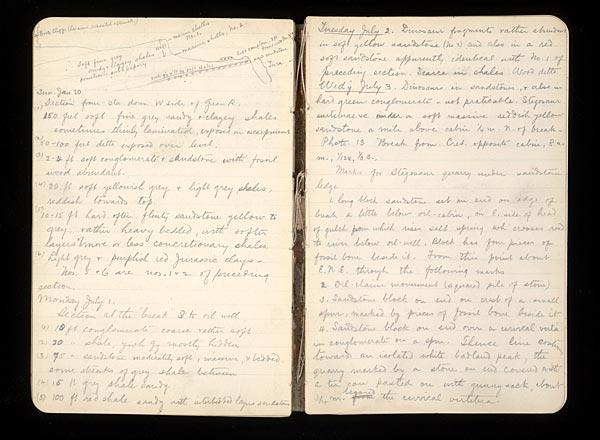 marine shells
No. 1.
marine shells, No. 2.
Soft fine grey
sandy & clayey shales
Sun. Jan 30
(1) Section four sta. down W side of Green R.
150 feet soft fine grey sandy & clayey shales
sometimes thinly laminated, exposed in escarpment
(2)
50-100 feet ditto exposed over level.
(3) 2-4 ft soft conglomerate & sandstone with fossil
wood abundant.
(4) 20 ft soft yellowish grey & light grey shales,
reddish towards top.
(5)
10-15 ft hard often flinty sandstone yellow to
grey, rather heavy bedded, with softer
layers & more or less concretionary shales
(6) Light grey & purplish red Jurassic clays
Nos. 5 & 6 are nos. 1 & 2 of preceding
section.
Monday July 1.
Section at the break S to oil well
(1) 18 ft conglomerate coarse rather soft
(2) 30 " shale, ywh gy mostly hidden
(3) 95 - sandstone moderately soft, massive & bedded
some streaks of grey shale between
(4) 15 ft grey shale sandy
(5) 100 ft red shale sandy with interbedded layers sandstone
Tuesday July 2. Dinosaur fragments rather abundant
in soft yellow sandstone (No 2) and also in a red
soft sandstone apparently identical with No. 1 of
preceding section. Scarce in shales. Wood ditto
Wedy July 3. Dinosaurs in sandstones, & also in
hard green conglomerate - not practicable. Stegosaur
vertebrae under a soft massive reddish yellow
sandstone a mile above cabin 1/4 m. N. of break -
Photo 13 Break from Cret. opposite cabin, 8 a-
m.,
Marks for Stegosaur quarry under sandstone
ledge
1. long block sandstone set on end on edge of
break a little below oil-cabin, on E. side of head
of gulch from which rises salt spring wh crosses road
to river below oil-well. Block has four pieces of
fossil bone beside it. From this point about
E.N.E. through the following marks
2. Oil-claim monument (squared pile of stone)
3. Sandstone block on end on crest of a small
spur, marked by pieces of fossil bone beside it
4. Sandstone block on end over a cervical vertebra
in conglomerate on a spur. Thence line continues
toward an isolated white badland peak, the
quarry marked by a stone on end covered with
a tin can pasted on with gunny sack, about
1/4 m. beyond the cervical vertebra.